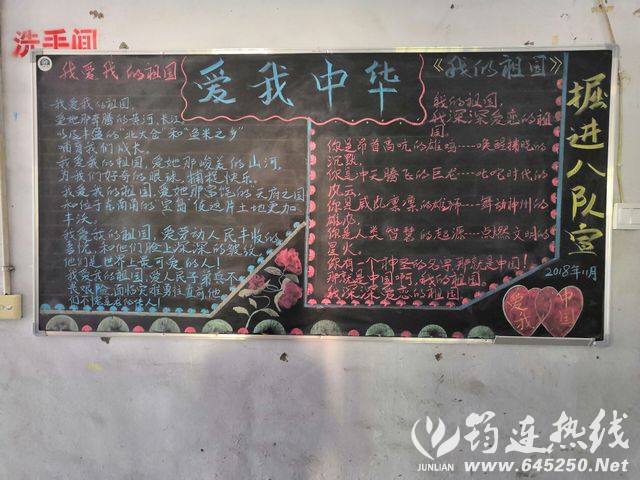 洗手间
我爱我的祖国
爱我中华
《我的祖国》
我爱我的祖国,
爱她那奔腾的黄河,长江
"北大仓"和"鱼米之乡"
哺育我们成长。
我爱我的祖国,爱她那峻美的山河。
为我们好奇的眼球,捕捉快乐。
我爱我的祖国,爱她那富饶的天府之国
促这片土地更加
丰沃。
我爱我的祖国,爱劳动人民丰收的
喜悦,和他们脸上深深的皱纹
他们是世界上最可爱的人!
我爱我的祖国,爱人民子弟兵不
我的祖国,
我深深爱恋的祖
国。
你是昂首高吭的雄鸡----唤醒拂晓的
沉默.
你是冲天腾飞的巨龙----叱咤时代的
风云.
你是威风凛凛的雄狮----舞动神州的
雄风.
你是人类智慧的起源----点燃文明的
星火。
你有一个神圣的名字,那就是中国!
那就是中国啊,我的祖国。
我深深爱恋的祖国
掘进八队宣
2018年11月
爱我
中国
筠连热线
JUNLIAN
www.645250.Net